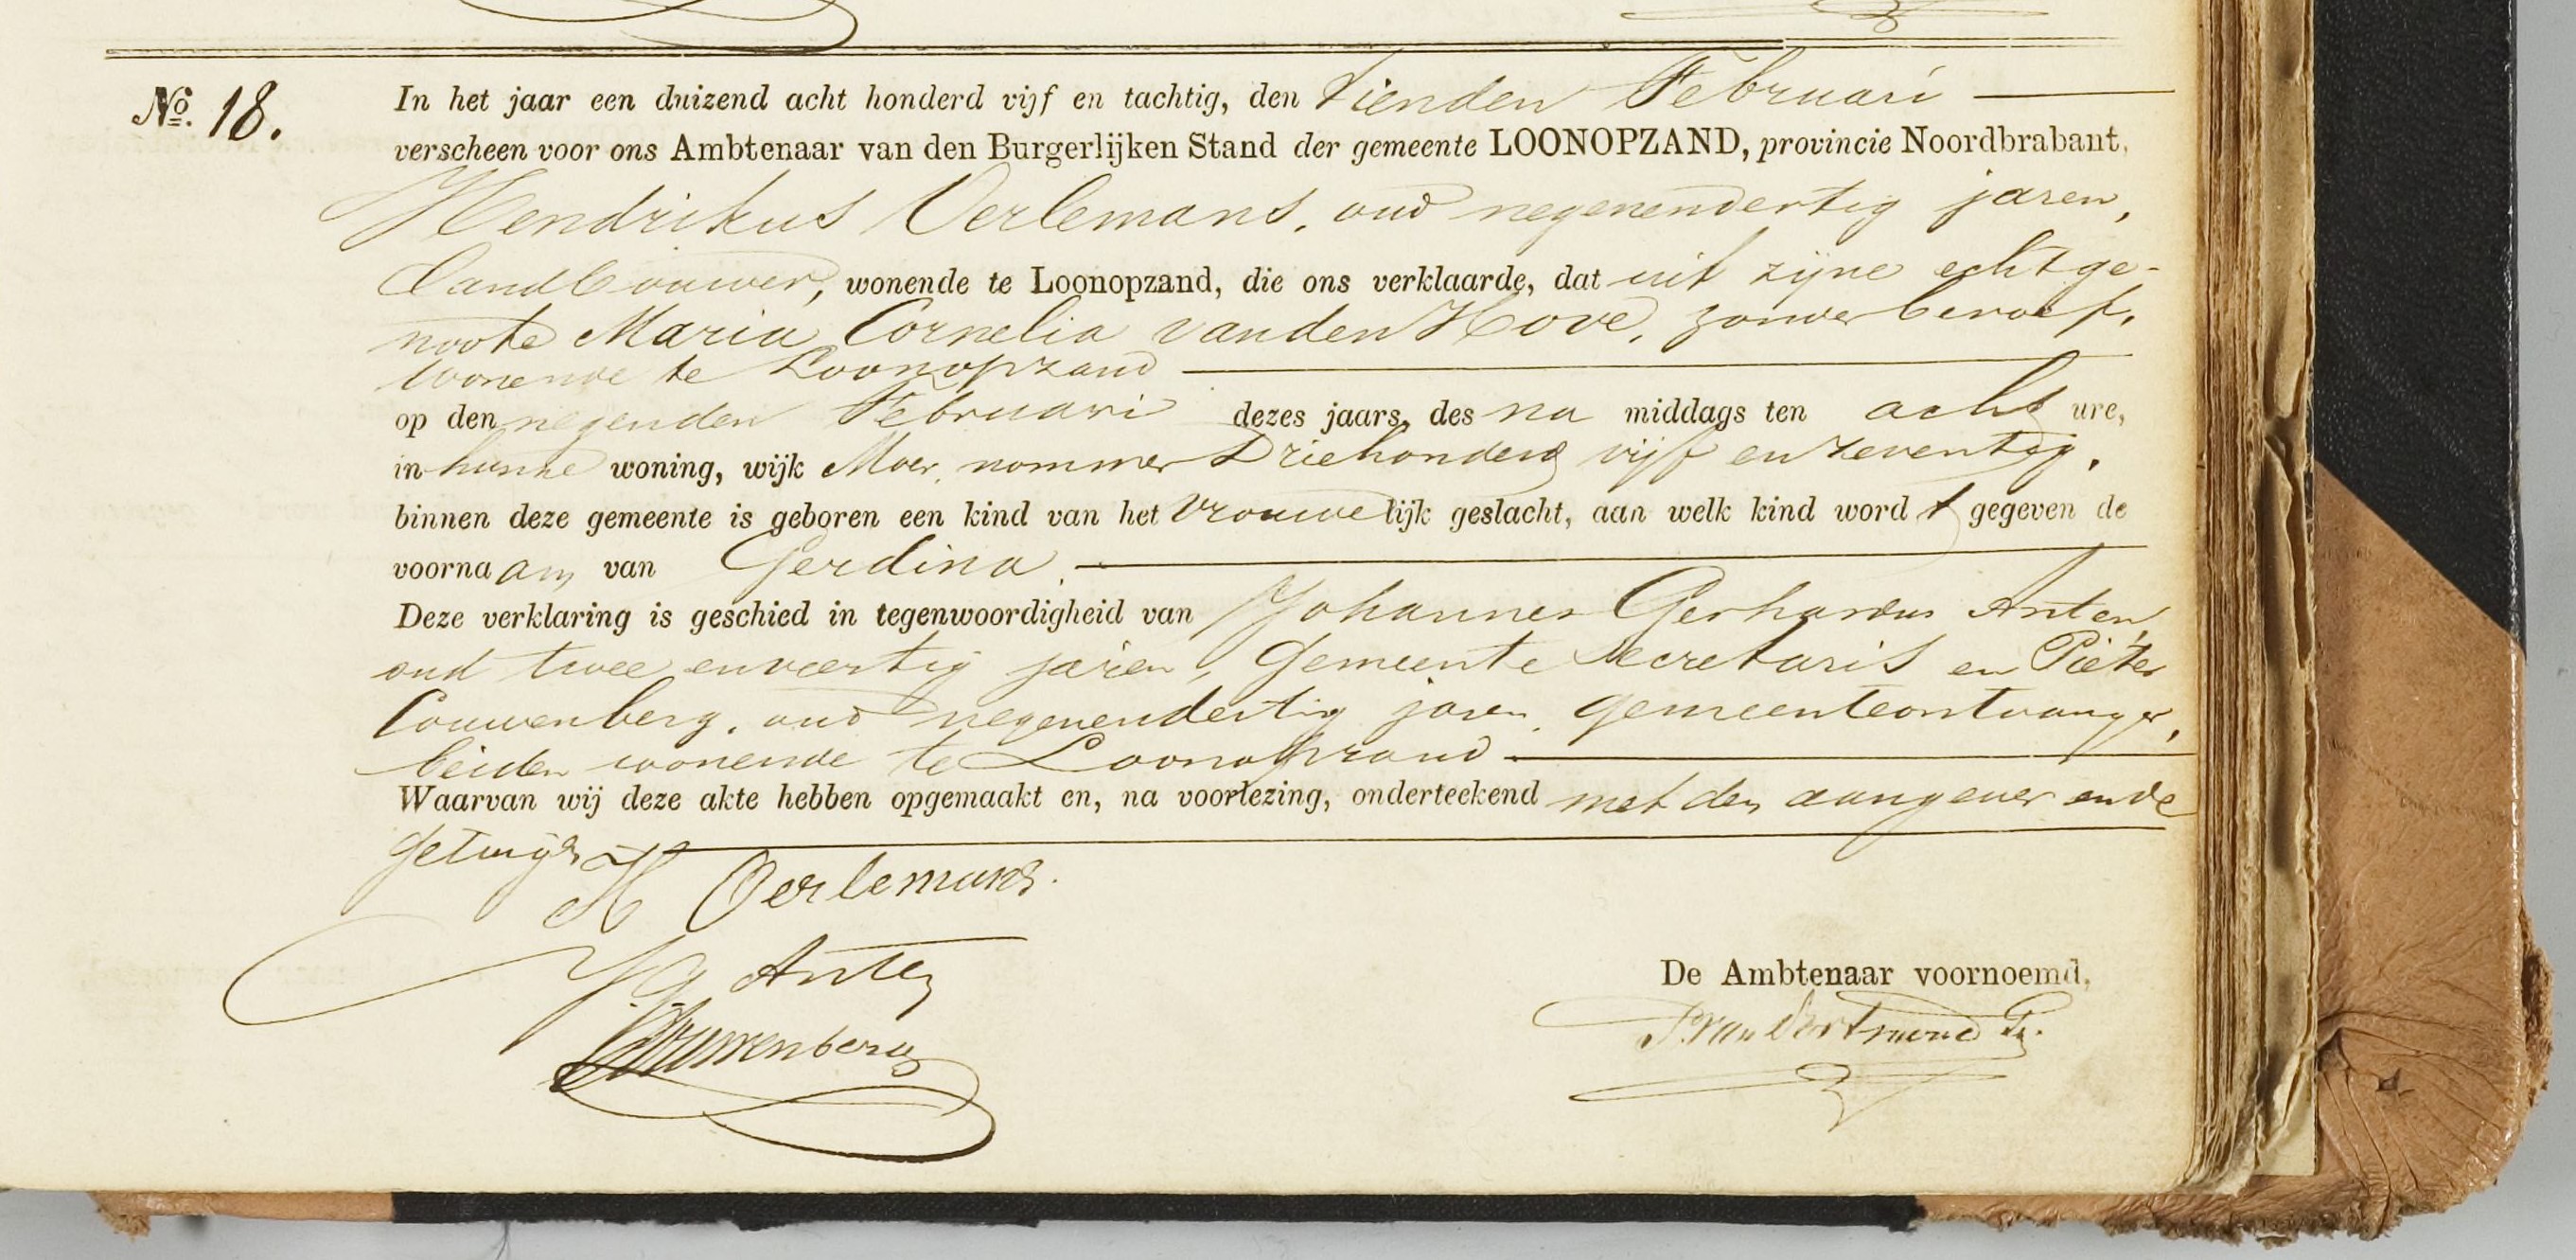 No. 18.
In het jaar een duizend acht honderd vijf en tachtig, den Tienden Februari
verscheen voor ons Ambtenaar van den Burgerlijken Stand der gemeente LOONOPZAND, provincie Noordbrabant,
Hendrikus Oerlemans, oud negenendertig jaren,
Landbouwer, wonende te Loonopzand, die ons verklaarde, dat uit zijne echtge-
noote Maria Cornelia van den Hove, zonder beroep,
wonende te Loonopzand
op den negenden Februari dezes jaars, des na middags ten acht ure,
in hunne woning, wijk Moer, nommer Driehonderd vijf en zeventig,
binnen deze gemeente is geboren een kind van het vrouwelijk geslacht, aan welk kind wordt gegeven de
voornaam van Gerdina.
Deze verklaring is geschied in tegenwoordigheid van Johannes Gerhardus Anten,
oud twee en veertig jaren, Gemeente Secretaris en Pieter
Couwenberg, oud negenendertig jaren, gemeenteontvanger,
beiden wonende te Loonopzand
Waarvan wij deze akte hebben opgemaakt en, na voorlezing, onderteekend met den aangever en de
getuigen
H Oerlemans.
J G Anten
Couwenberg
De Ambtenaar voornoemd,
P. van Dortmond